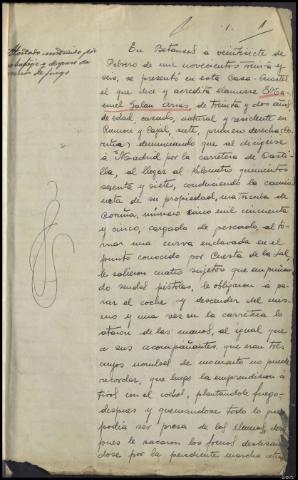 En Betanzos a veintisiete de
Febrero de mil novecientos treinta y
seis, se presentó en esta Casa-Cuartel
el que dice y acredita llamarse Ma-
nuel Galan Arias de treinta y dos años
de edad, casado, natural y residente en
Ramon y Cajal, siete, primero derecha,
denunciando que al dirigirse
a Madrid por la carretera de Casti-
lla, al llegar al kilometro quinientos
sesenta y siete, conduciendo la camio-
neta de su propiedad, matricula de
Coruña, numero cinco mil cincuenta
y cinco, cargada de pescado, al to-
mar una curva enclavada en el
punto conocido por Cuesta de la Sal,
le salieron cuatro sujetos que empuñan-
do sendas pistolas, le obligaron a pa-
rar el coche y descender del mis-
mo y una vez en la carretera lo
ataron de las manos, al igual que
a sus acompañantes, que eran tres
cuyos nombres de momento no puede
recordar, que luego la emprendieron a
tiros con el coche, plantandole fuego
despues y quemandose todo lo que
podia ser presa de las llamas, des-
pues le sacaron los frenos
dose por la pendiente marcha atras